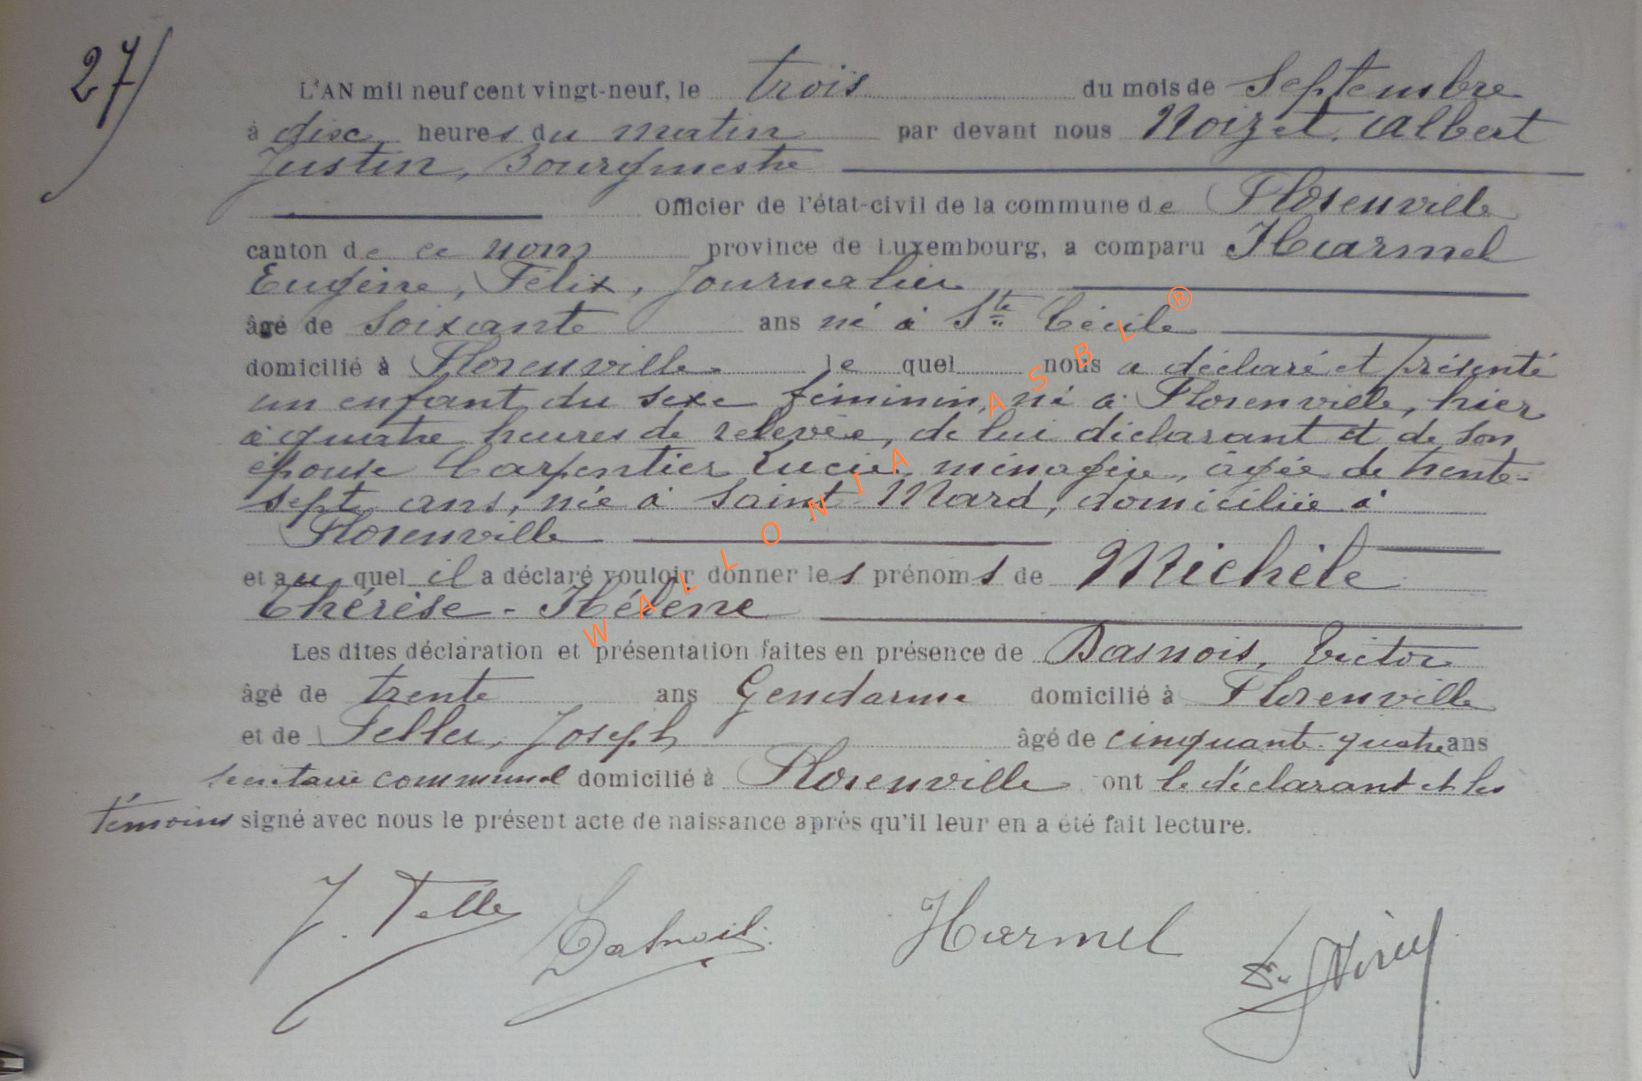 27/
L'AN mil neuf cent vingt-neuf, le trois du mois de Septembre
à dix heures du matin par devant nous Noizet, Albert
Justin, Bourgmestre
Officier de l'état-civil de la commune de Florenville
canton de ce nom province de Luxembourg, a comparu Harmel
Eugène, Félix, Journalier
âgé de soixante ans né à Ste Cécile
domicilié à Florenville le quel nous a déclaré et présenté
un enfant du sexe féminin, né à Florenville, hier
à quatre heures de relevée, de lui déclarant et de son
épouse Carpentier Lucie, ménagère, âgée de trente-
sept ans, née à Saint Mard, domiciliée à
Florenville
et au quel il a déclaré vouloir donner les prénoms de Michèle
Thérèse - Hélène
Les dites déclaration et présentation faites en présence de Dasnois, Victor
âgé de trente ans Gendarme domicilié à Florenville
et de Feller, Joseph âgé de cinquante-quatre ans
secrétaire communal domicilié à Florenville ont le déclarant et les
témoins signé avec nous le présent acte de naissance après qu'il leur en a été fait lecture.
J. Feller Dasnois Harmel
WALLONIA ASBL ®